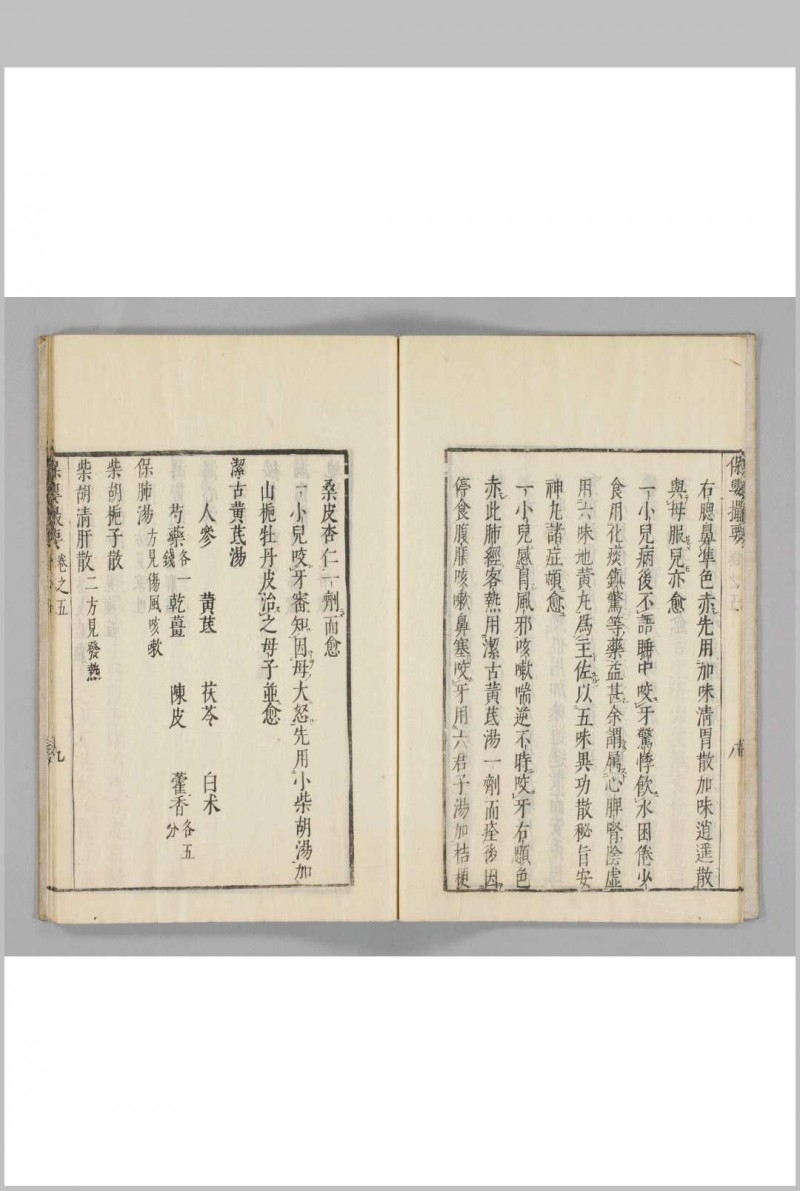 保嬰撮要
右腮鼻準色赤先用加味清胃散加味逍遥散
與母服兒亦愈
一小兒病後不語睡中咬牙驚悸飲水困倦少
食用化痰鎮驚等藥益甚余謂屬心脾腎陰虛
用六味地黄丸爲主佐以五味異功散秘旨安
神丸諸症頓愈
一小兒感冒風邪咳嗽喘逆不時咬牙右顋色
赤此肺經客熱用潔古黄芪湯一劑而痊後因
停食腹脹咳嗽鼻塞咬牙用六君子湯加桔梗
八
桑皮杏仁一劑而愈
一小兒咬牙審知因母大怒先用小柴胡湯加
山梔牡丹皮治之母子並愈
潔古黄芪湯
人參 黄芪 茯苓 白术
芍藥各一錢 乾薑 陳皮 藿香各五分
保肺湯方見傷風咳嗽
柴胡梔子散
柴胡清肝散二方見發熱
保嬰撮要 卷之五 九